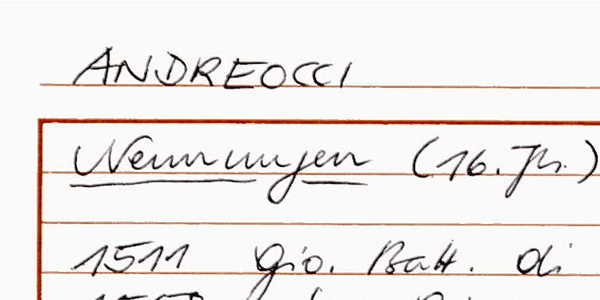 ANDREOCCI
Nennungen (16. Jh.)
1511 Gio. Batt. di